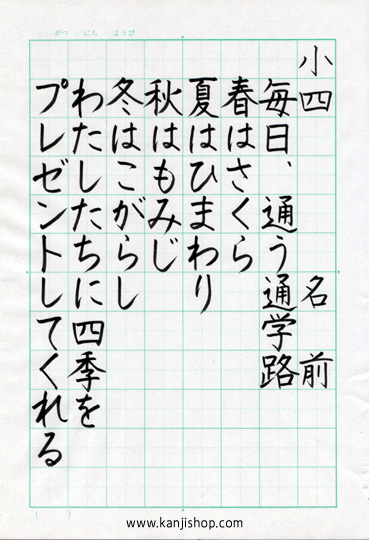 がつ にち ようび
小四 名前
毎日、通う通学路
春はさくら
夏はひまわり
秋はもみじ
冬はこがらし
わたしたちに四季を
プレゼントしてくれる
( )
www.kanjishop.com